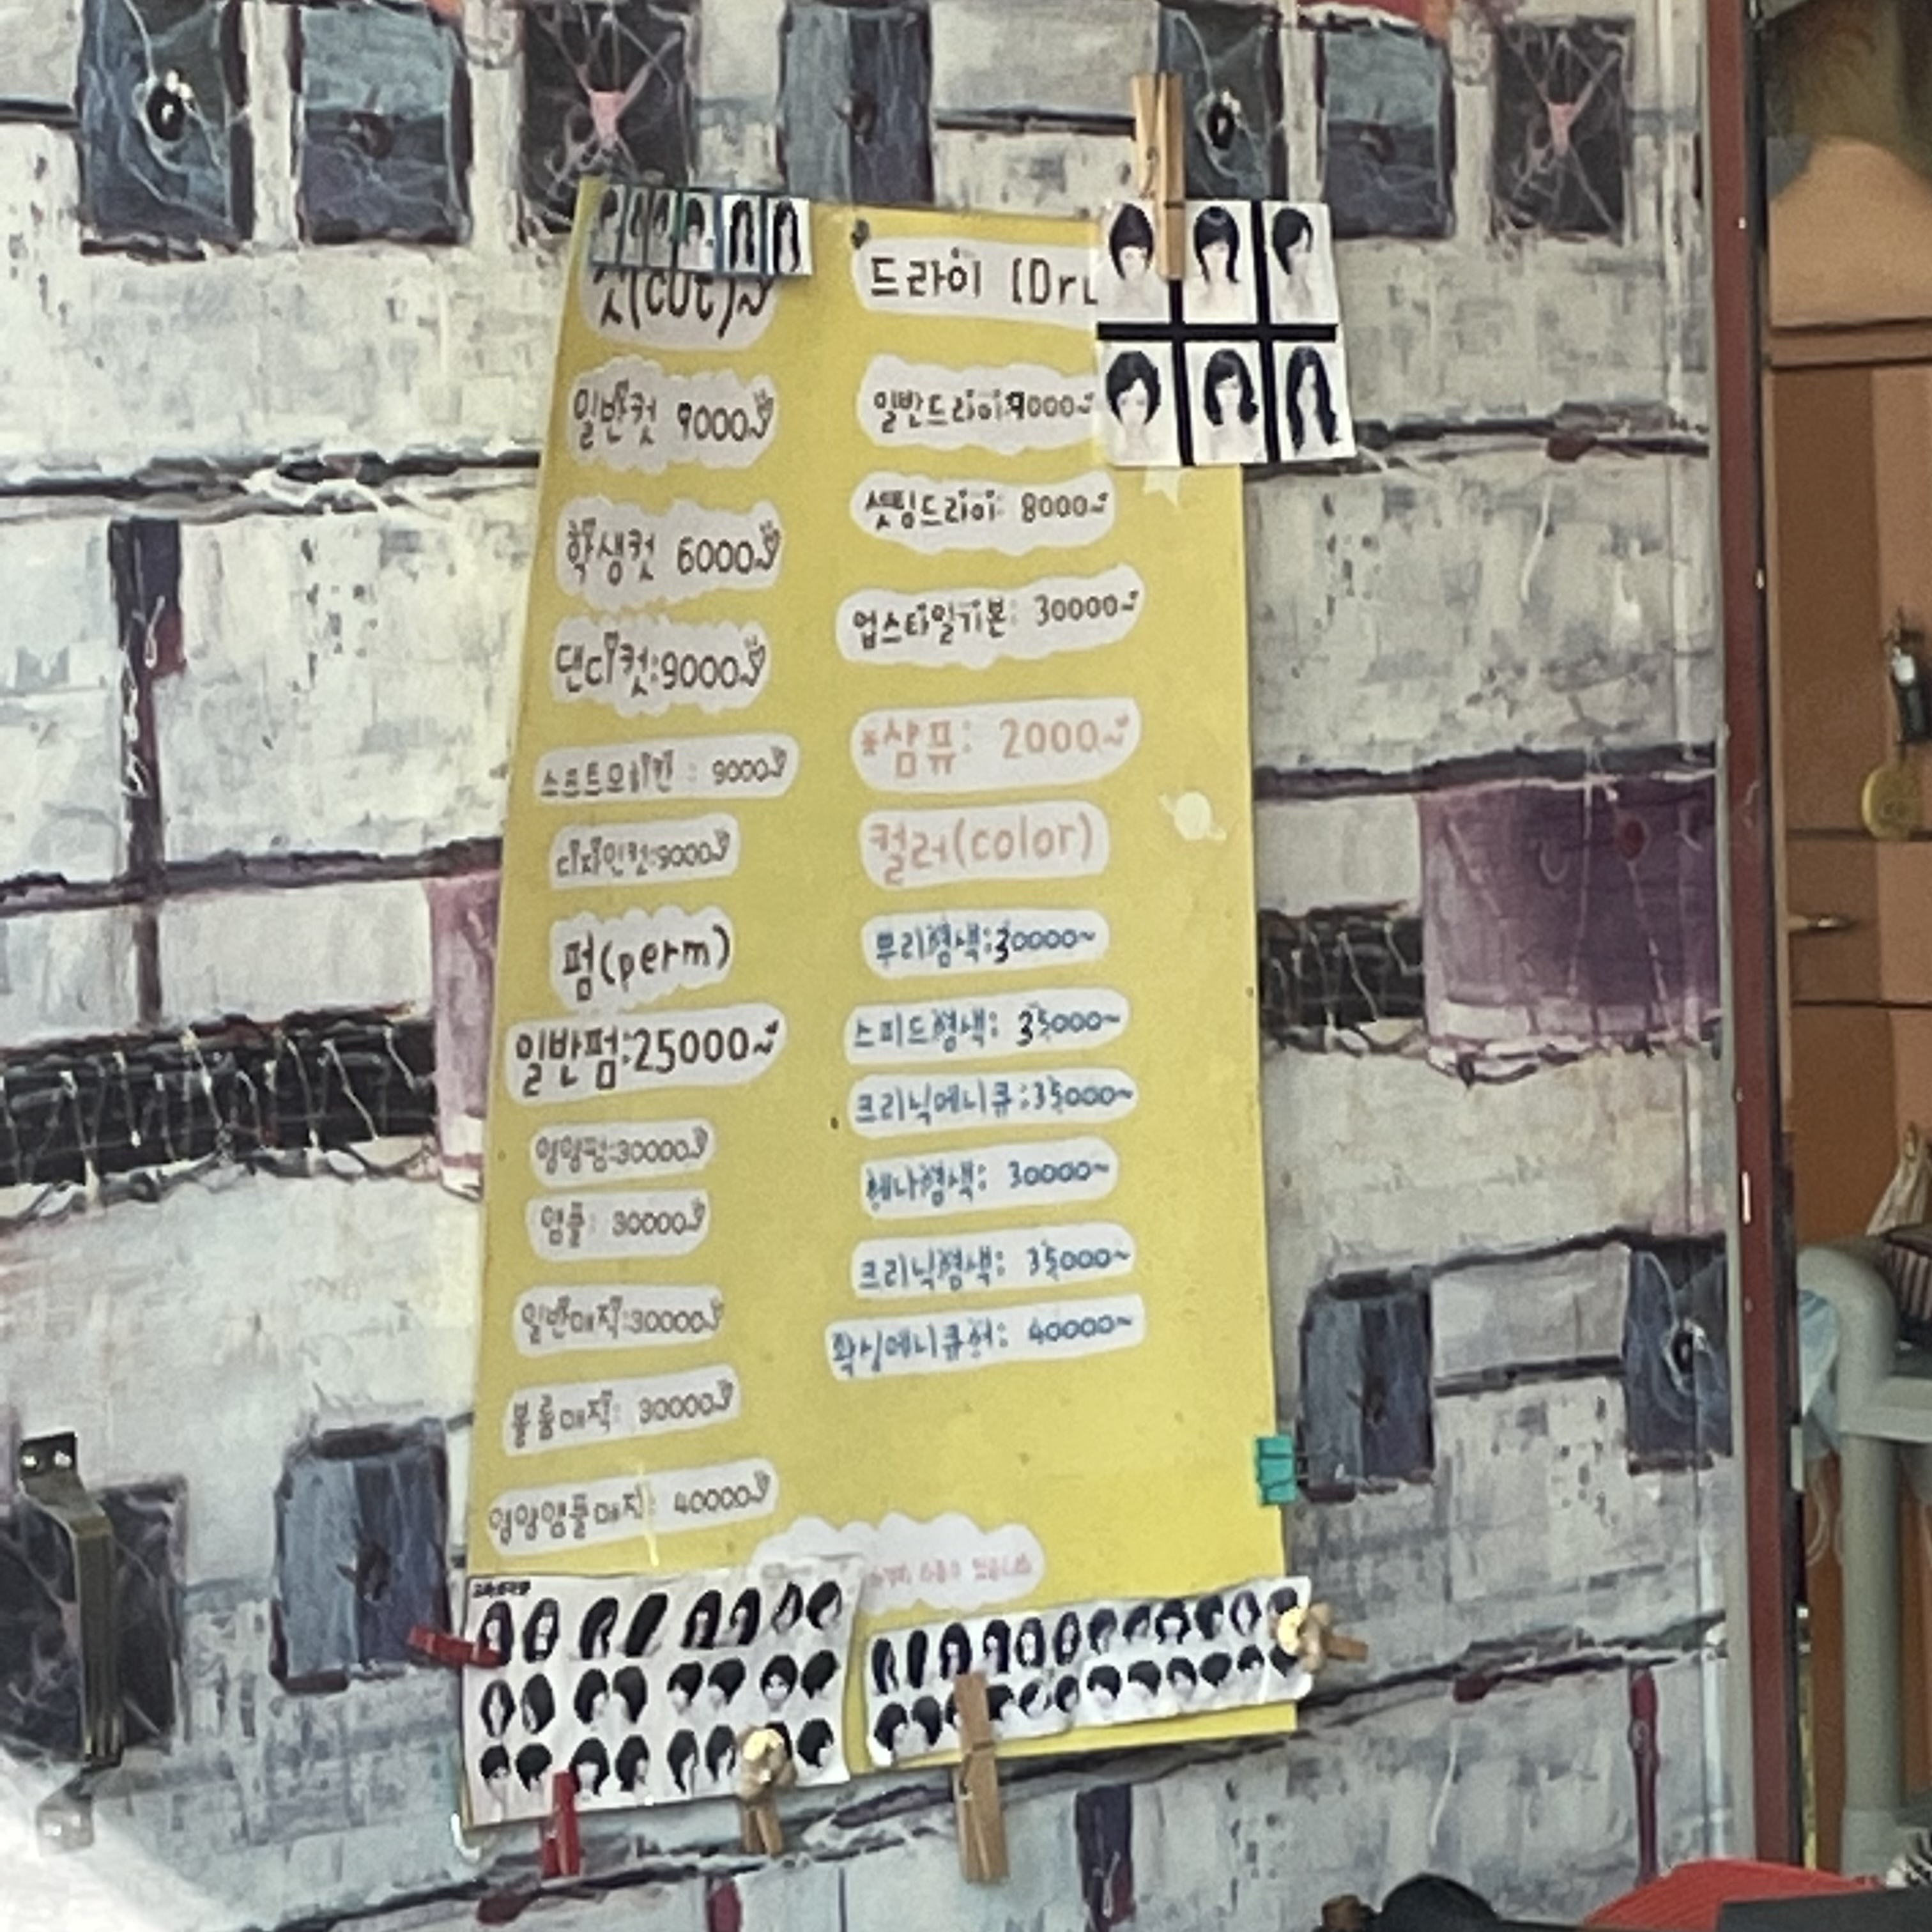 컷(cut)~
일반컷 9000~
학생컷 6000~
댄디컷:9000~
소프트모히칸 : 9000~
디자인컷:9000~
펌(perm)
일반펌:25000~
영양펌:30000~
앰플: 30000~
일반매직:30000~
볼륨매직: 30000~
영양앰플매직: 40000~
드라이 (Dr
일반드라이:9000~
셋팅드라이: 8000~
업스타일기본: 30000~
*샴퓨: 2000~
컬러(color)
뿌리염색:30000~
스피드염색: 35000~
크리닉메니큐:35000~
헤나염색: 30000~
크리닉염색: 35000~
왁싱메니큐어: 40000~